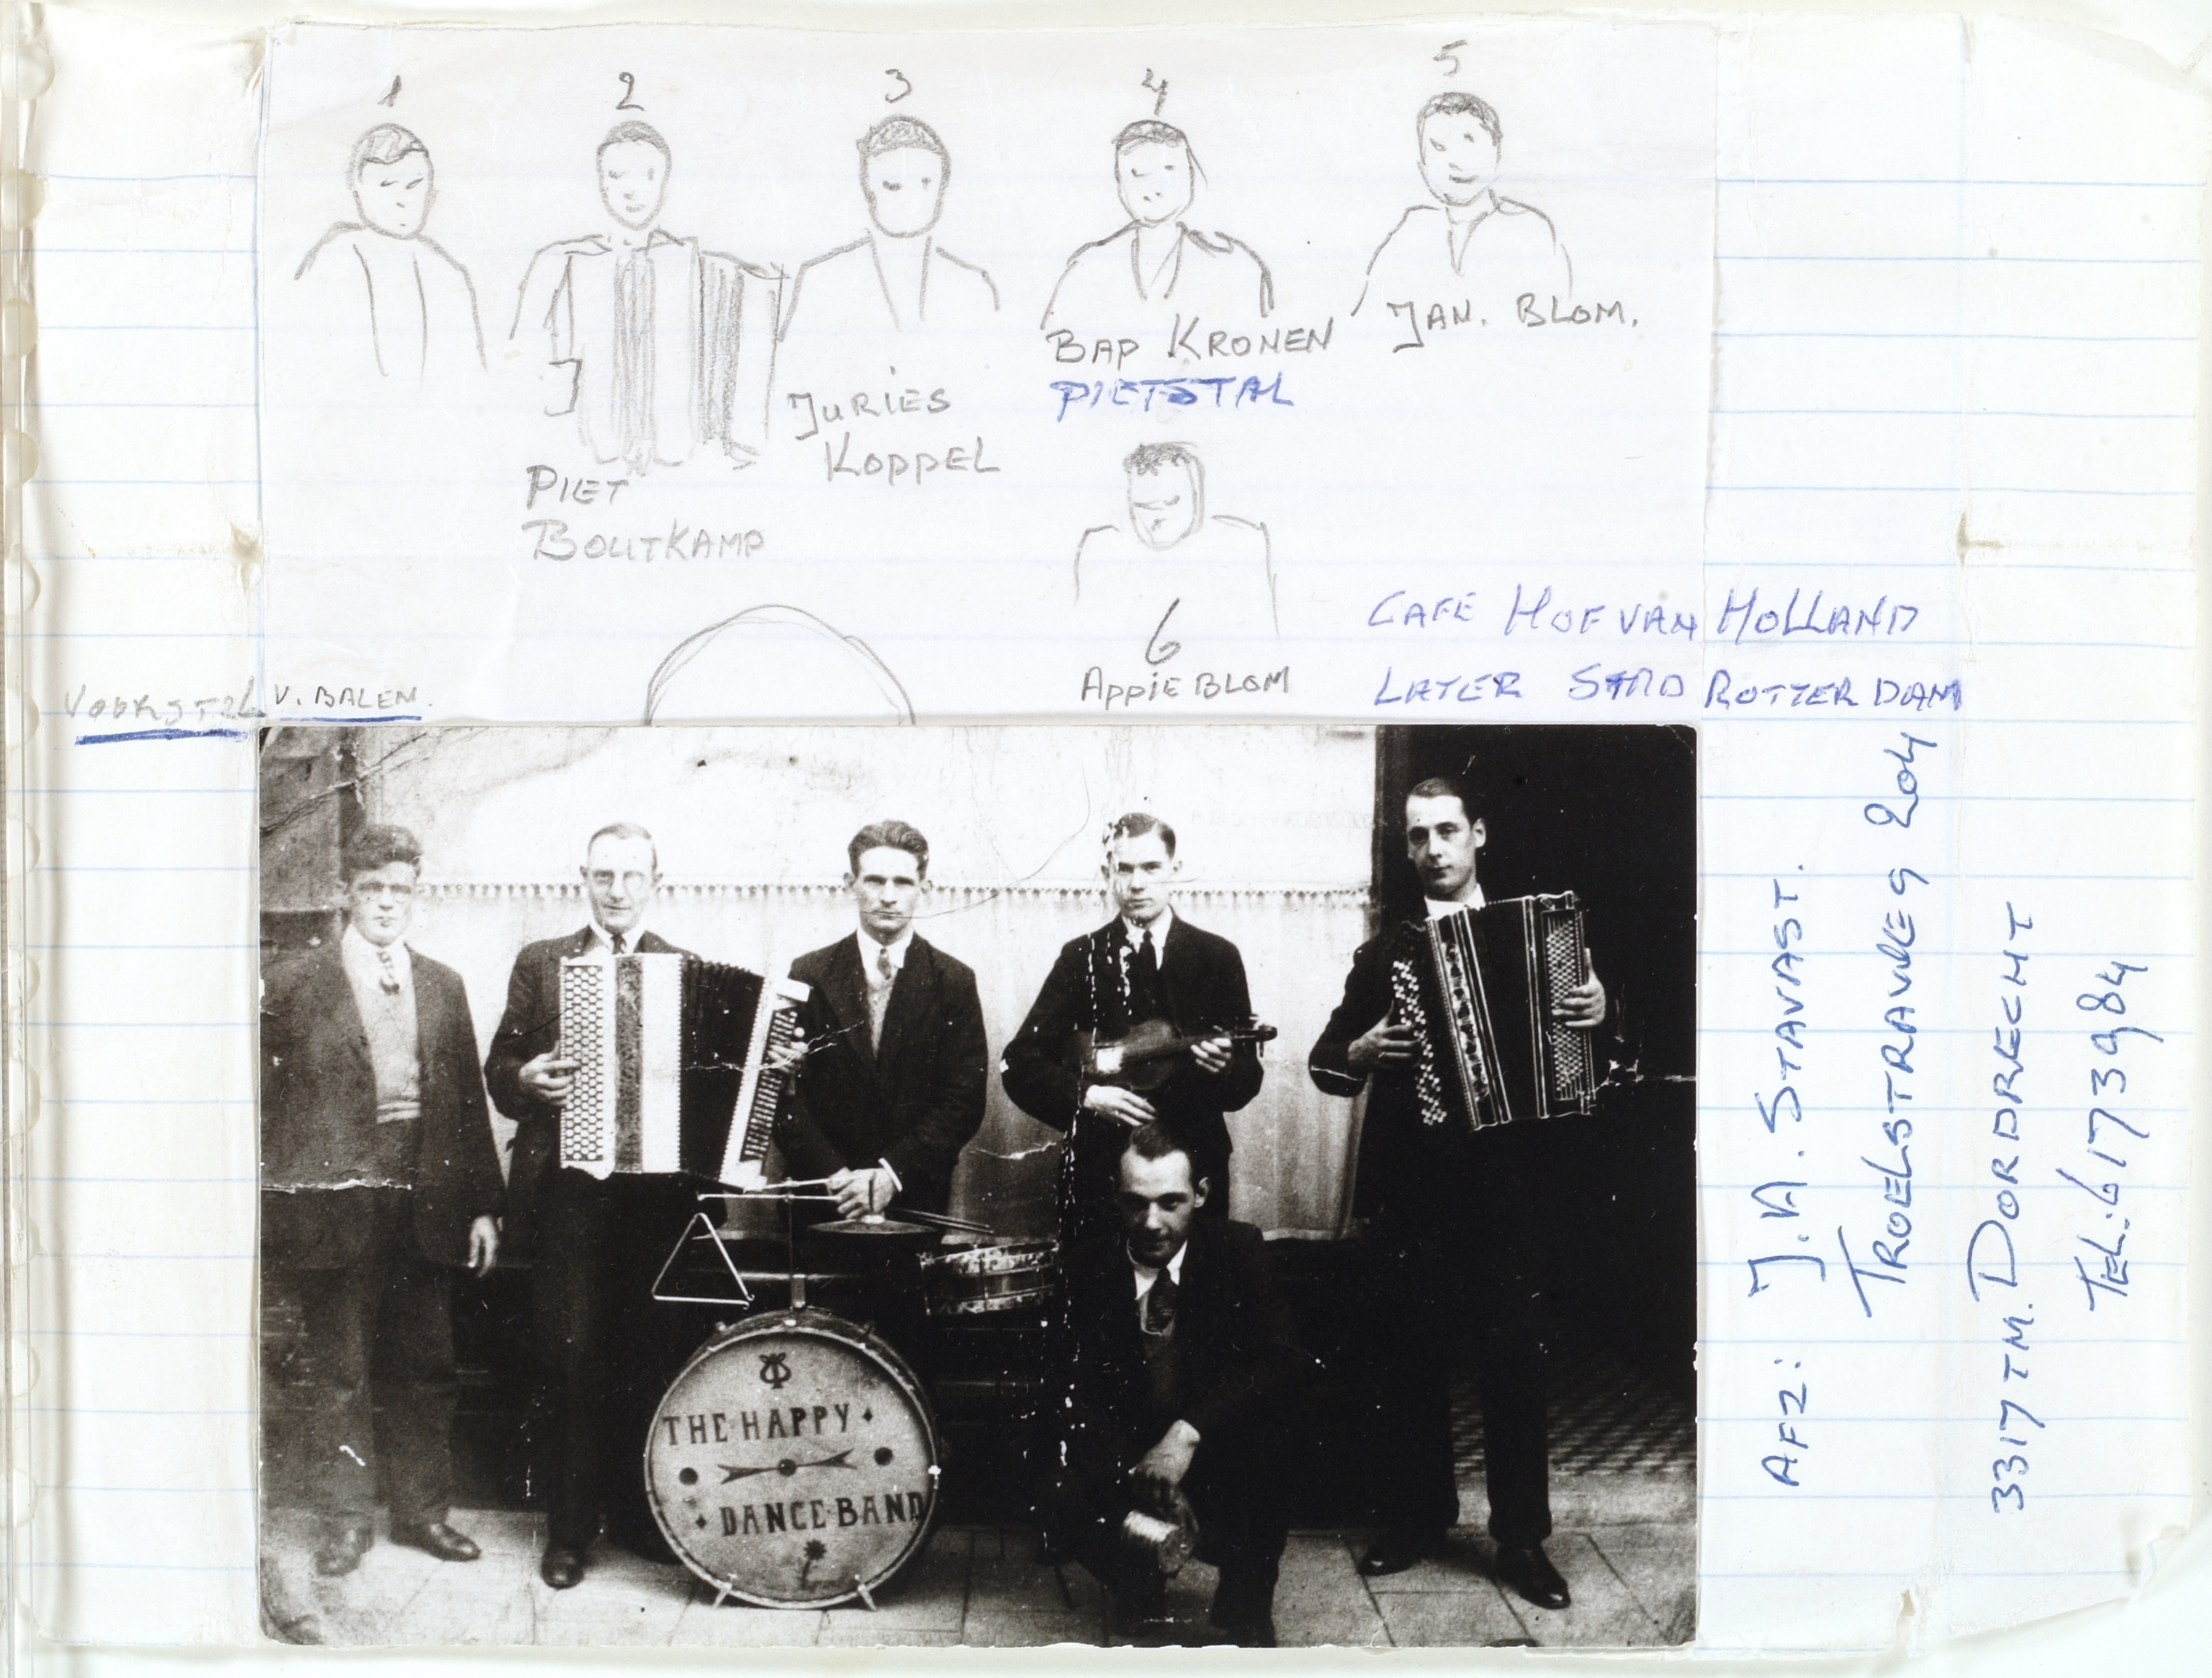 1 2 3 4 5
JAN. BLOM.
BAP KRONEN
PIETSTAL
JURIES
KOPPEL
PIET
BOUTKAMP
6
APPIE BLOM
CAFE HOF VAN HOLLAND
LATER STAD ROTTERDAM
V. BALEN.
THE HAPPY
DANCE BAND
AFZ: J.A. STAVAST.
TROELSTRAWEG 204
3317 TM. DORDRECHT
TEL: 6173984